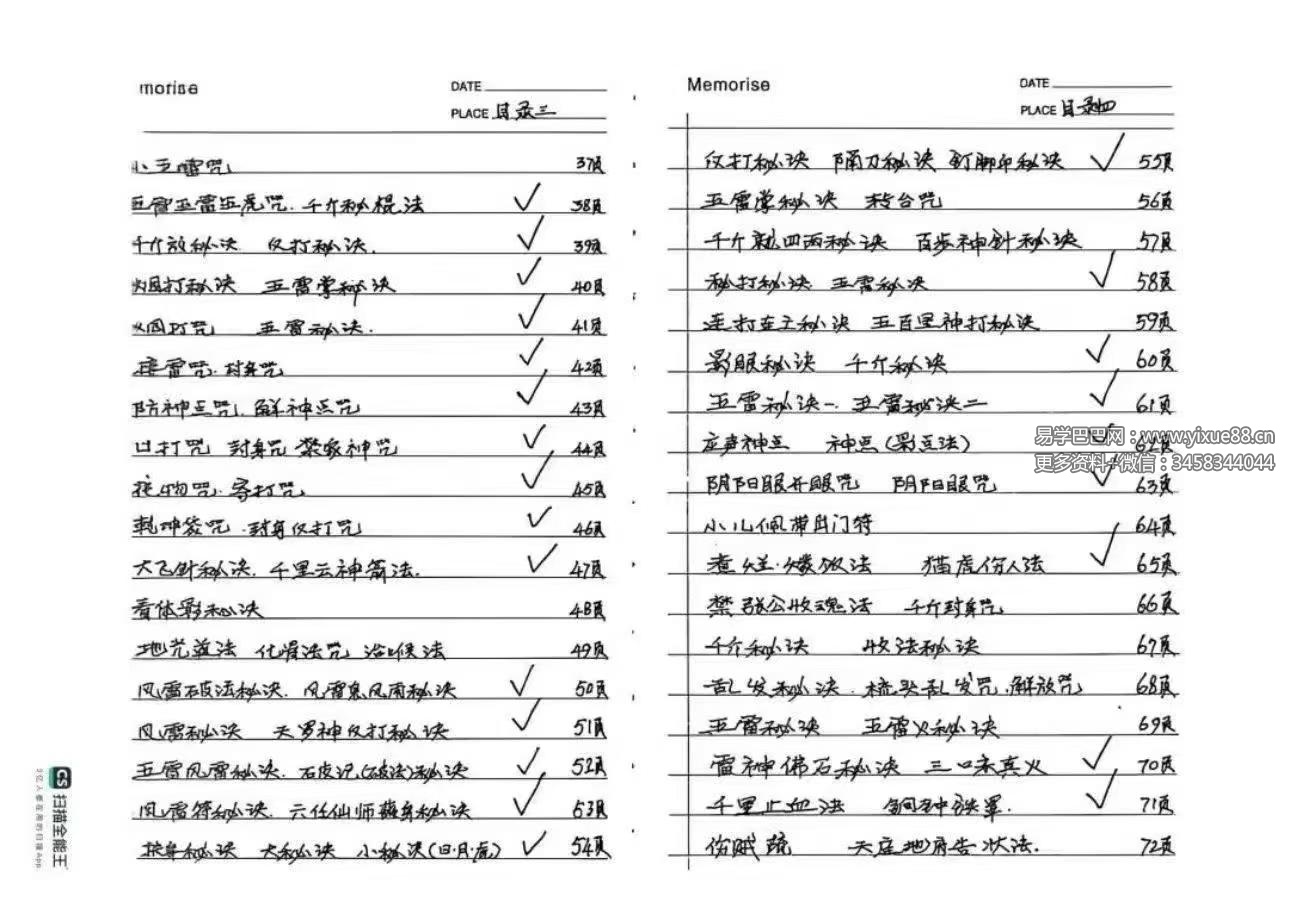 morise
DATE
PLACE 目录三
小五雷咒 37页
五雷五雷五虎咒. 千斤秘棍法 ✓ 38页
千斤放秘决 仪打秘决. ✓ 39页
打秘决 五雷掌秘决 ✓ 40页
打咒 五雷秘决. ✓ 41页
接雷咒. 封身咒 ✓ 42页
防神点咒. 解神点咒 ✓ 43页
口打咒 封身咒 禁象神咒 ✓ 44页
咒. 寄打咒 ✓ 45页
乾坤袋咒. 封身仪打咒 ✓ 46页
大飞针秘决. 千里云神箭法. ✓ 47页
看体彩秘决 48页
地光益法 化 法咒 治喉法 49页
风雷破法秘决. 风雷息风雨秘决 ✓ 50页
风雷秘决 天罗神仪打秘决 ✓ 51页
五雷风雷秘决. (破法)秘决 ✓ 52页
风雷符秘决. 六任仙师藏身秘决 ✓ 53页
秘决 大秘决 小秘决(日.月.) ✓ 54页
Memorise
DATE
PLACE 目录四
仪打秘决 隔刀秘决 钉脚印秘决 ✓ 55页
五雷掌秘决 转台咒 56页
千斤就四两秘决 百步神针秘决 57页
秘打秘决 五雷秘决 ✓ 58页
连打在土秘决 五百里神打秘决 59页
影眼秘决 千斤秘决 ✓ 60页
五雷秘决一. 五雷秘决二 ✓ 61页
应声神点 神点(彩点法) ✓ 62页
易学巴巴网：www.yixue88.cn
更多资料+微信：3458344044
阴阳眼开眼咒 阴阳眼咒 ✓ 63页
小儿佩带出门符 64页
煮烂.烧饭法 猫虎伤人法 ✓ 65页
禁张公收魂法 千斤封身咒 66页
千斤秘决 收法秘决 67页
乱发秘决. 梳头乱发咒. 解放咒 68页
五雷秘决 五雷火秘决 69页
雷神佛石秘决 三口朱真火 ✓ 70页
千里止血法 铜钟铁罩. ✓ 71页
贼 天庭地府告状法. 72页
CS 扫描全能王
3亿人都在用的扫描App